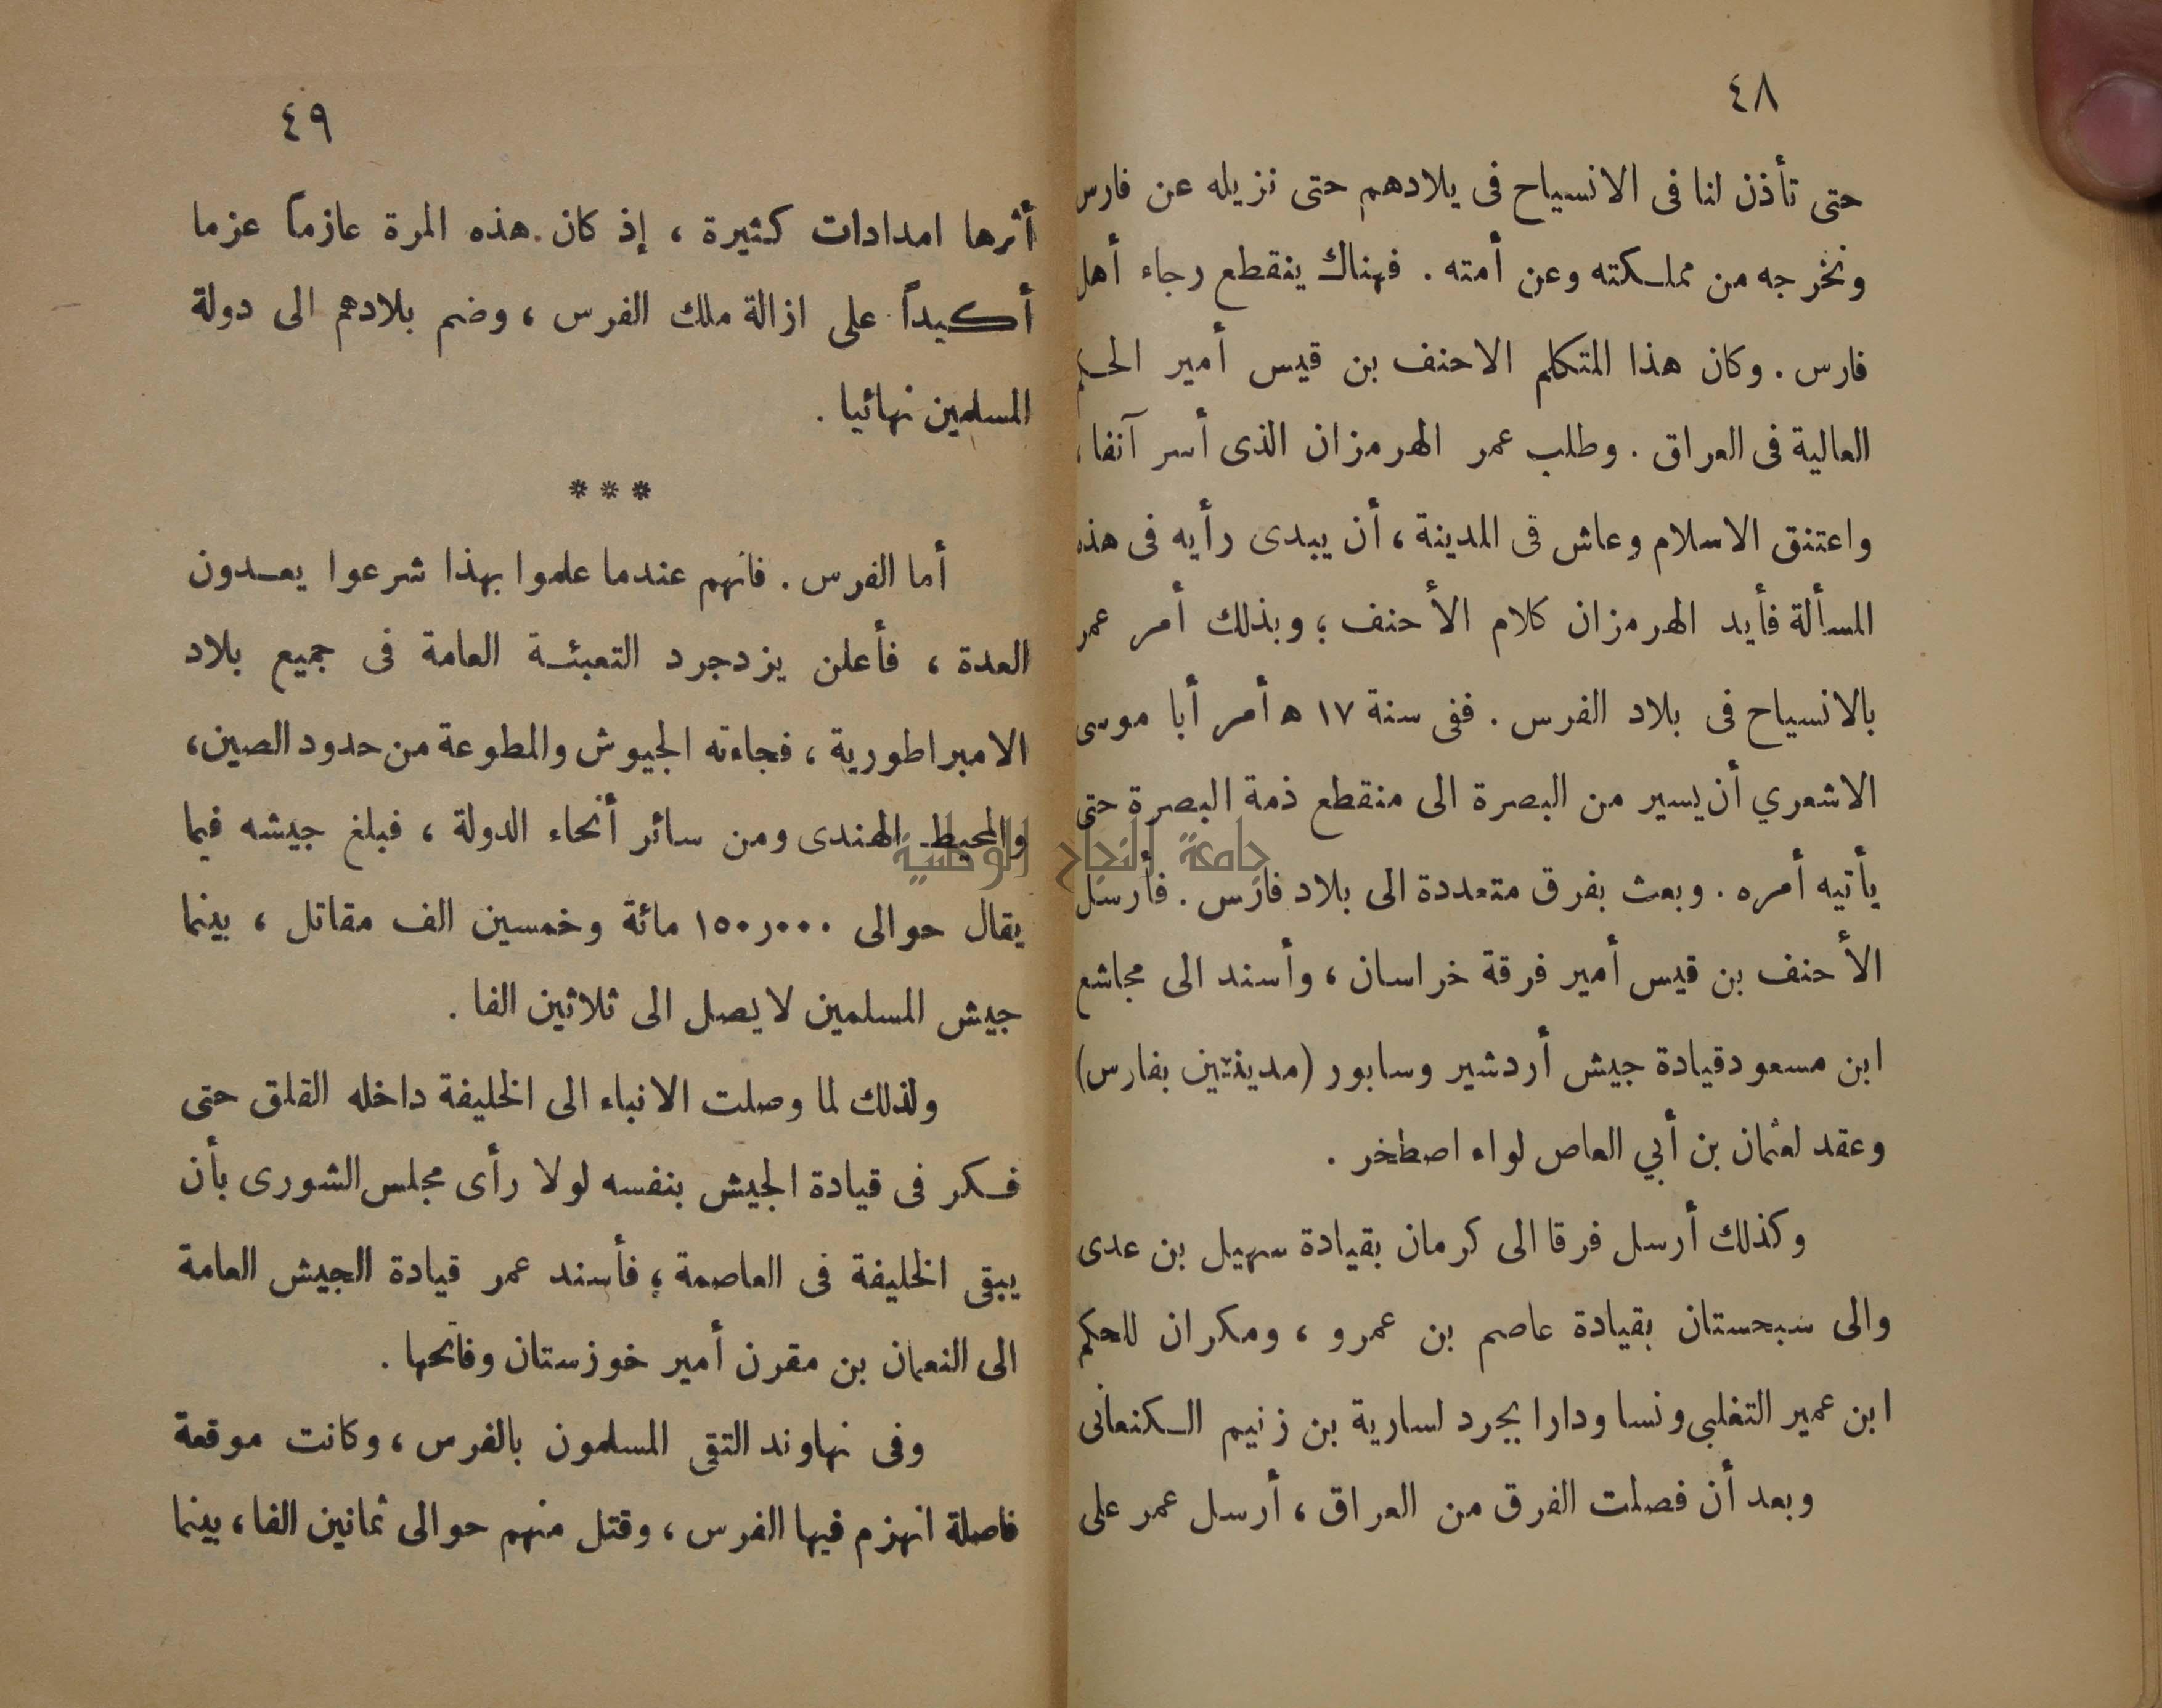 ٤٨
حتى تأذن لنا فى الانسياح فى يلادهم حتى نزيله عن فارس
ونخرجه من مملكته وعن أمته . فهناك ينقطع رجاء أهل
فارس . وكان هذا المتكلم الاحنف بن قيس أمير الحكم
العالية فى العراق . وطلب عمر الهرمزان الذى أسر آنفا ،
واعتنق الاسلام وعاش فى المدينة ، أن يبدى رأيه فى هذه
المسألة فأيد الهرمزان كلام الأحنف ؛ وبذلك أمر عمر
بالانسياح فى بلاد الفرس . ففى سنة ١٧ ه أمر أبا موسى
الاشعري أن يسير من البصرة الى منقطع ذمة البصرة حتى
يأتيه أمره . وبعث بفرق متعددة الى بلاد فارس . فأرسل
الأحنف بن قيس أمير فرقة خراسان ، وأسند الى مجاشع
ابن مسعود قيادة جيش أردشير وسابور (مدينتين بفارس)
وعقد لعثمان بن أبي العاص لواء اصطخر .
وكذلك أرسل فرقا الى كرمان بقيادة سهيل بن عدى
والى سبحستان بقيادة عاصم بن عمرو ، ومكران للحكم
ابن عمير التغلبى ونسا ودارا بجرد لسارية بن زنيم الكنعانى
وبعد أن فصلت الفرق من العراق ، أرسل عمر على
٤٩
أثرها امدادات كثيرة ، إذ كان هذه المرة عازماً عزما
أكيداً على ازالة ملك الفرس ، وضم بلادهم الى دولة
المسلمين نهائيا .
* * *
أما الفرس . فانهم عندما علموا بهذا شرعوا يعدون
العدة ، فأعلن يزدجرد التعبئة العامة فى جميع بلاد
الامبراطورية ، فجاءته الجيوش والمطوعة من حدود الصين ،
والمحيط الهندى ومن سائر أنحاء الدولة ، فبلغ جيشه فيما
يقال حوالى ١٥٠٫٠٠٠ مائة وخمسين الف مقاتل ، بينما
جيش المسلمين لا يصل الى ثلاثين الفا .
ولذلك لما وصلت الانباء الى الخليفة داخله القلق حتى
فكر فى قيادة الجيش بنفسه لولا رأى مجلس الشورى بأن
يبقى الخليفة فى العاصمة ؛ فأسند عمر قيادة الجيش العامة
الى النعمان بن مقرن أمير خوزستان وفاتحها .
وفى نهاوند التقى المسلمون بالفرس ، وكانت موقعة
فاصلة انهزم فيها الفرس ، وقتل منهم حوالى ثمانين الفا ، بينما
جامعة النجاح الوطنية